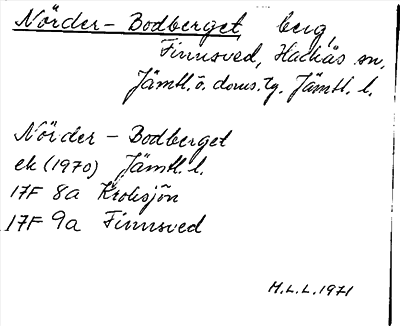 Nörder - Bodberget, berg,
Finnsved, Hackås sn,
Jämtl. ö. doms. tg. Jämtl. l.
Nörder - Bodberget
ek (1970) Jämtl. l.
17F 8a Kroksjön
17F 9a Finnsved
M.L.L. 1971